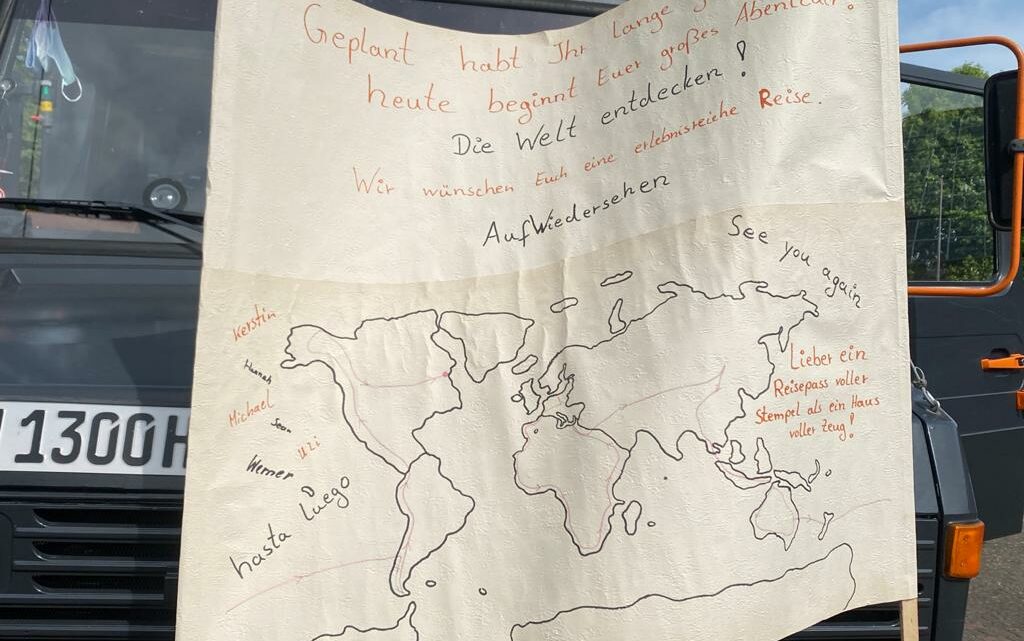 Geplant habt Ihr lange
heute beginnt Euer großes Abenteuer!
Die Welt entdecken!
Wir wünschen Euch eine erlebnisreiche Reise.
AufWiedersehen
See you again
Kerstin
Hannah
Michael
Sean
Uzi
Werner
hasta luego
Lieber ein
Reisepass voller
Stempel als ein Haus
voller Zeug!
1300H